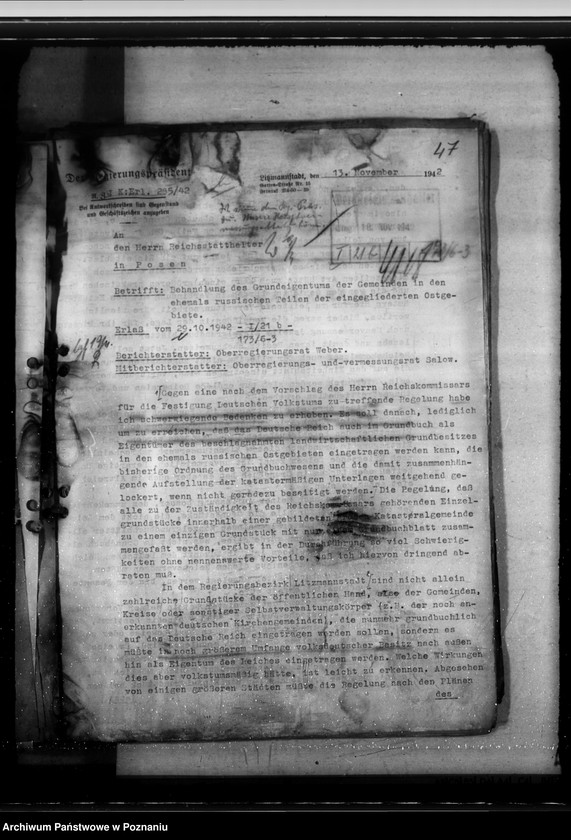 47
Der Regierungspräsident
Litzmannstadt, den 13. November 1942
K:Erl. 285/42
Bei Antwortschreiben sind Gegenstand
und Geschäftszeichen anzugeben
An
den Herrn Reichsstatthalter
in Posen
Betrifft: Behandlung des Grundeigentums der Gemeinden in den
ehemals russischen Teilen der eingegliederten Ostge-
biete.
Erlaß vom 29.10.1942 - I/21 b -
173/6-3
Berichterstatter: Oberregierungsrat Weber.
Mitberichterstatter: Oberregierungs- und-vermessungsrat Salow.
Gegen eine nach dem Vorschlag des Herrn Reichskommissars
für die Festigung Deutschen Volkstums zu-treffende Regelung habe
ich schwerwiegende Bedenken zu erheben. Es soll danach, lediglich
um zu erreichen, daß das Deutsche Reich auch im Grundbuch als
Eigentümer des beschlagnahmten landwirtschaftlichen Grundbesitzes
in den ehemals russischen Ostgebieten eingetragen werden kann, die
bisherige Ordnung des Grundbuchwesens und die damit zusammenhän-
gende Aufstellung der katastermäßigen Unterlagen weitgehend ge-
lockert, wenn nicht geradezu beseitigt werden. Die Regelung, daß
alle zu der Zuständigkeit des Reichskommissars gehörenden Einzel-
grundstücke innerhalb einer gebildeten Katastralgemeinde
zu einem einzigen Grundstück mit nur Grundbuchblatt zusam-
mengefaßt werden, ergibt in der Durchführung so viel Schwierig-
keiten ohne nennenswerte Vorteile, daß ich hiervon dringend ab-
raten muß.
In dem Regierungsbezirk Litzmannstadt sind nicht allein
zahlreiche Grundstücke der öffentlichen Hand, wie der Gemeinden,
Kreise oder sonstiger Selbstverwaltungskörper (z.B. der noch an-
erkannten deutschen Kirchengemeinden), die nunmehr grundbuchlich
auf das Deutsche Reich eingetragen werden sollen, sondern es
müßte in noch größerem Umfange volksdeutscher Besitz nach außen
hin als Eigentum des Reiches eingetragen werden. Welche Wirkungen
dies aber volkstumsmäßig hätte, ist leicht zu erkennen. Abgesehen
von einigen größeren Städten müßte die Regelung nach den Plänen
des
Archiwum Państwowe w Poznaniu